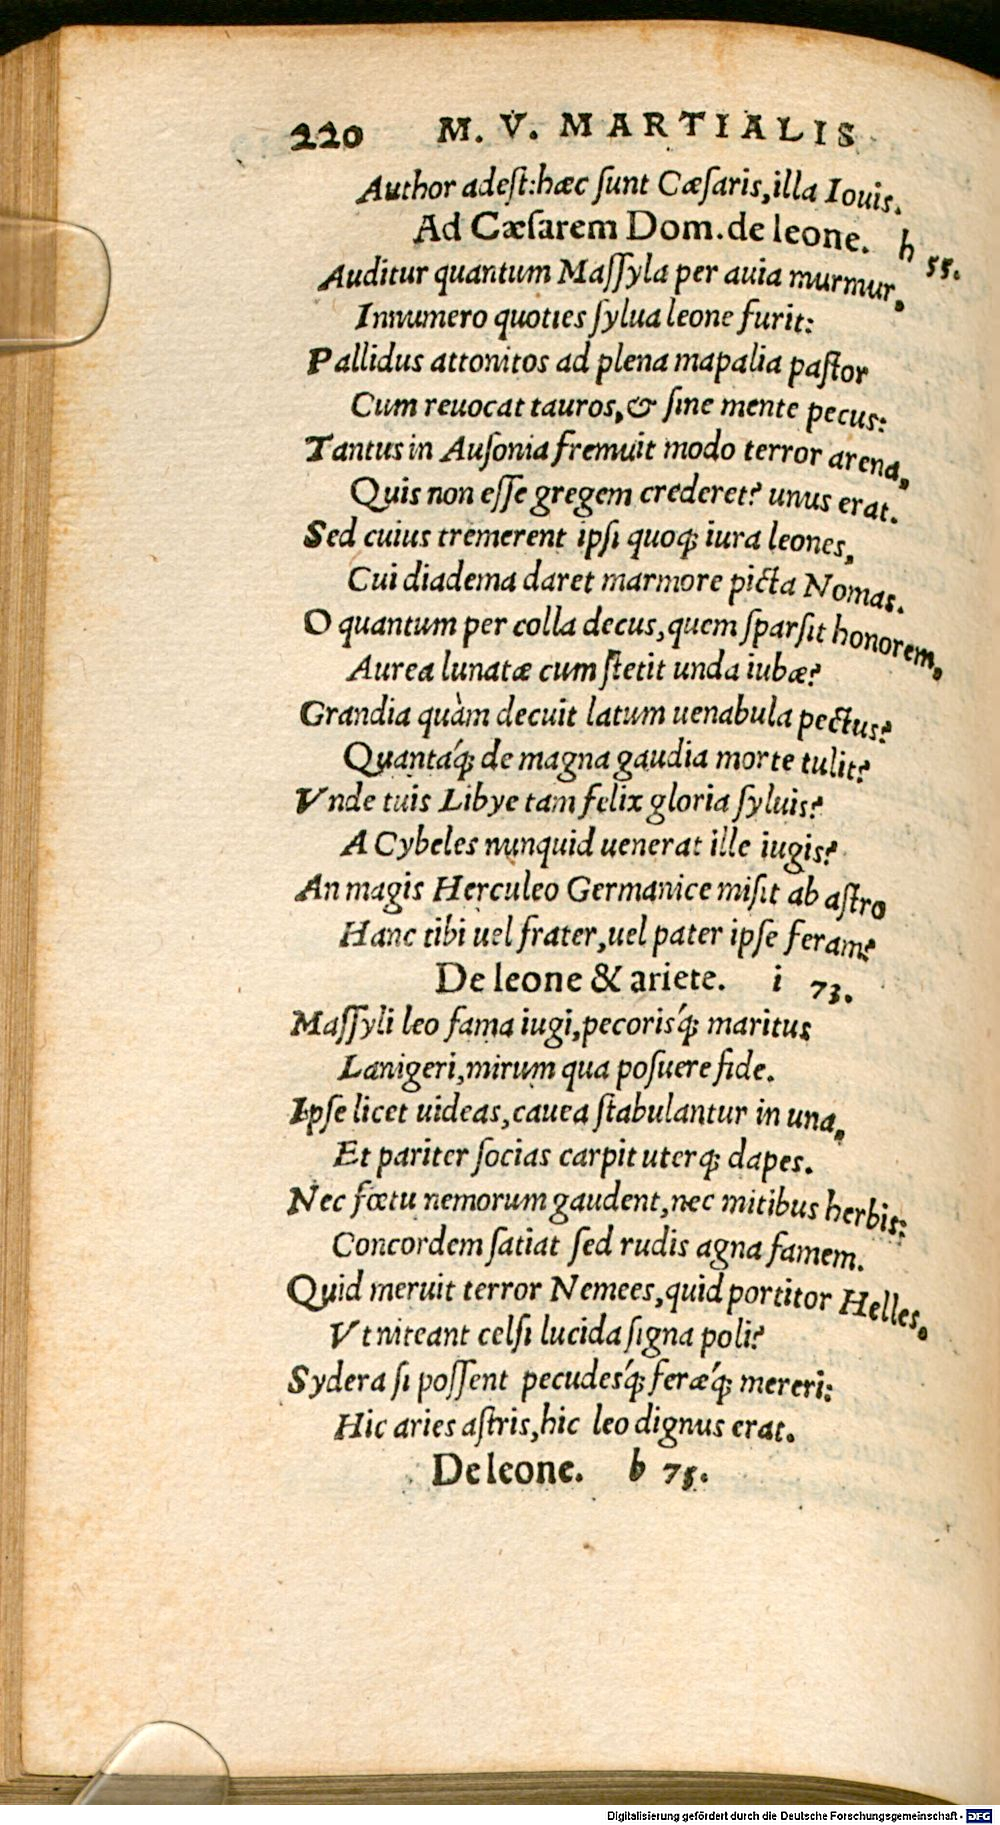 220 M. V. MARTIALIS
Author adeſt:hæc ſunt Cæſaris,illa Iouis.
Ad Cæſarem Dom. de leone. h 55.
Auditur quantum Maſſyla per auia murmur,
Innumero quoties ſylua leone furit:
Pallidus attonitos ad plena mapalia paſtor
Cum reuocat tauros,& ſine mente pecus:
Tantus in Auſonia fremuit modo terror arena,
Quis non eſſe gregem crederet? unus erat.
Sed cuius tremerent ipſi quoq; iura leones,
Cui diadema daret marmore picta Nomas.
O quantum per colla decus,quem ſparſit honorem,
Aurea lunatæ cum ſtetit unda iubæ?
Grandia quàm decuit latum uenabula pectus?
Quantáq; de magna gaudia morte tulit?
Vnde tuis Libye tam felix gloria ſyluis?
A Cybeles nunquid uenerat ille iugis?
An magis Herculeo Germanice miſit ab aſtro
Hanc tibi uel frater,uel pater ipſe feram?
De leone & ariete. i 73.
Maſſyli leo fama iugi,pecorisq́; maritus
Lanigeri,mirum qua poſuere fide.
Ipſe licet uideas,cauea ſtabulantur in una,
Et pariter ſocias carpit uterq; dapes.
Nec fœtu nemorum gaudent,nec mitibus herbis:
Concordem ſatiat ſed rudis agna famem.
Quid meruit terror Nemees,quid portitor Helles,
Vt niteant celſi lucida ſigna poli?
Sydera ſi poſſent pecudesq́; feræq́; mereri:
Hic aries aſtris,hic leo dignus erat.
De leone. b 75.
Digitalisierung gefördert durch die Deutsche Forschungsgemeinschaft - DFG